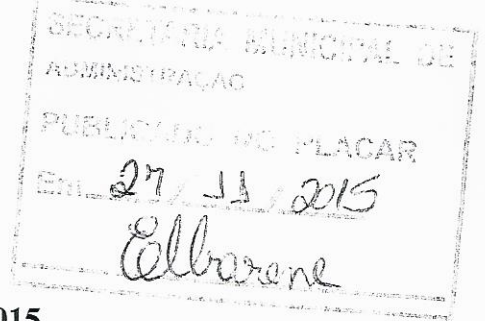 SECRETARIA MUNICIPAL DE
ADMINISTRAÇÃO
PUBLICADO NO PLACAR
Em 27 / 11 / 2015
015